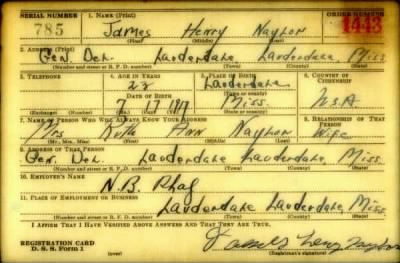 SERIAL NUMBER 1. NAME (Print) ORDER NUMBER
785 James Henry Naylor 1443
(First) (Middle) (Last)
2. ADDRESS (Print)
Gen. Del. Lauderdale Lauderdale Miss
(Number and street or R. F. D. number) (Town) (County) (State)
3. TELEPHONE 4. AGE IN YEARS 5. PLACE OF BIRTH 6. COUNTRY OF CITIZENSHIP
22 Lauderdale
DATE OF BIRTH (Town or county)
7 17 Miss. U.S.A.
(Exchange) (Number) (Mo.) (Day) (Yr.) (State or country)
7. NAME OF PERSON WHO WILL ALWAYS KNOW YOUR ADDRESS 8. RELATIONSHIP OF THAT PERSON
Mrs Ruth Ann Naylor Wife
(Mr., Mrs., Miss) (First) (Middle) (Last)
9. ADDRESS OF THAT PERSON
Gen. Del. Lauderdale Lauderdale, Miss.
(Number and street or R. F. D. number) (Town) (County) (State)
10. EMPLOYER'S NAME
N.B.
11. PLACE OF EMPLOYMENT OR BUSINESS
Lauderdale Lauderdale, Miss
(Number and street or R. F. D. number) (Town) (County) (State)
I AFFIRM THAT I HAVE VERIFIED ABOVE ANSWERS AND THAT THEY ARE TRUE.
REGISTRATION CARD James Henry Naylor
D. S. S. Form 1 (over) (Registrant's signature)